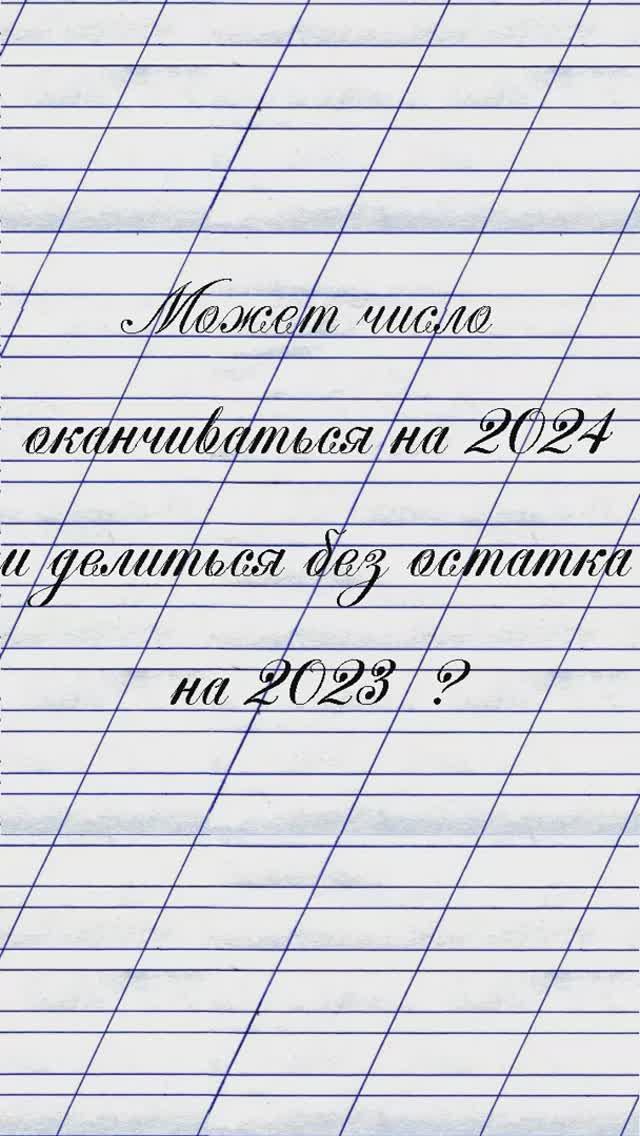 Может число
оканчиваться на 2024
и делиться без остатка
на 2023 ?